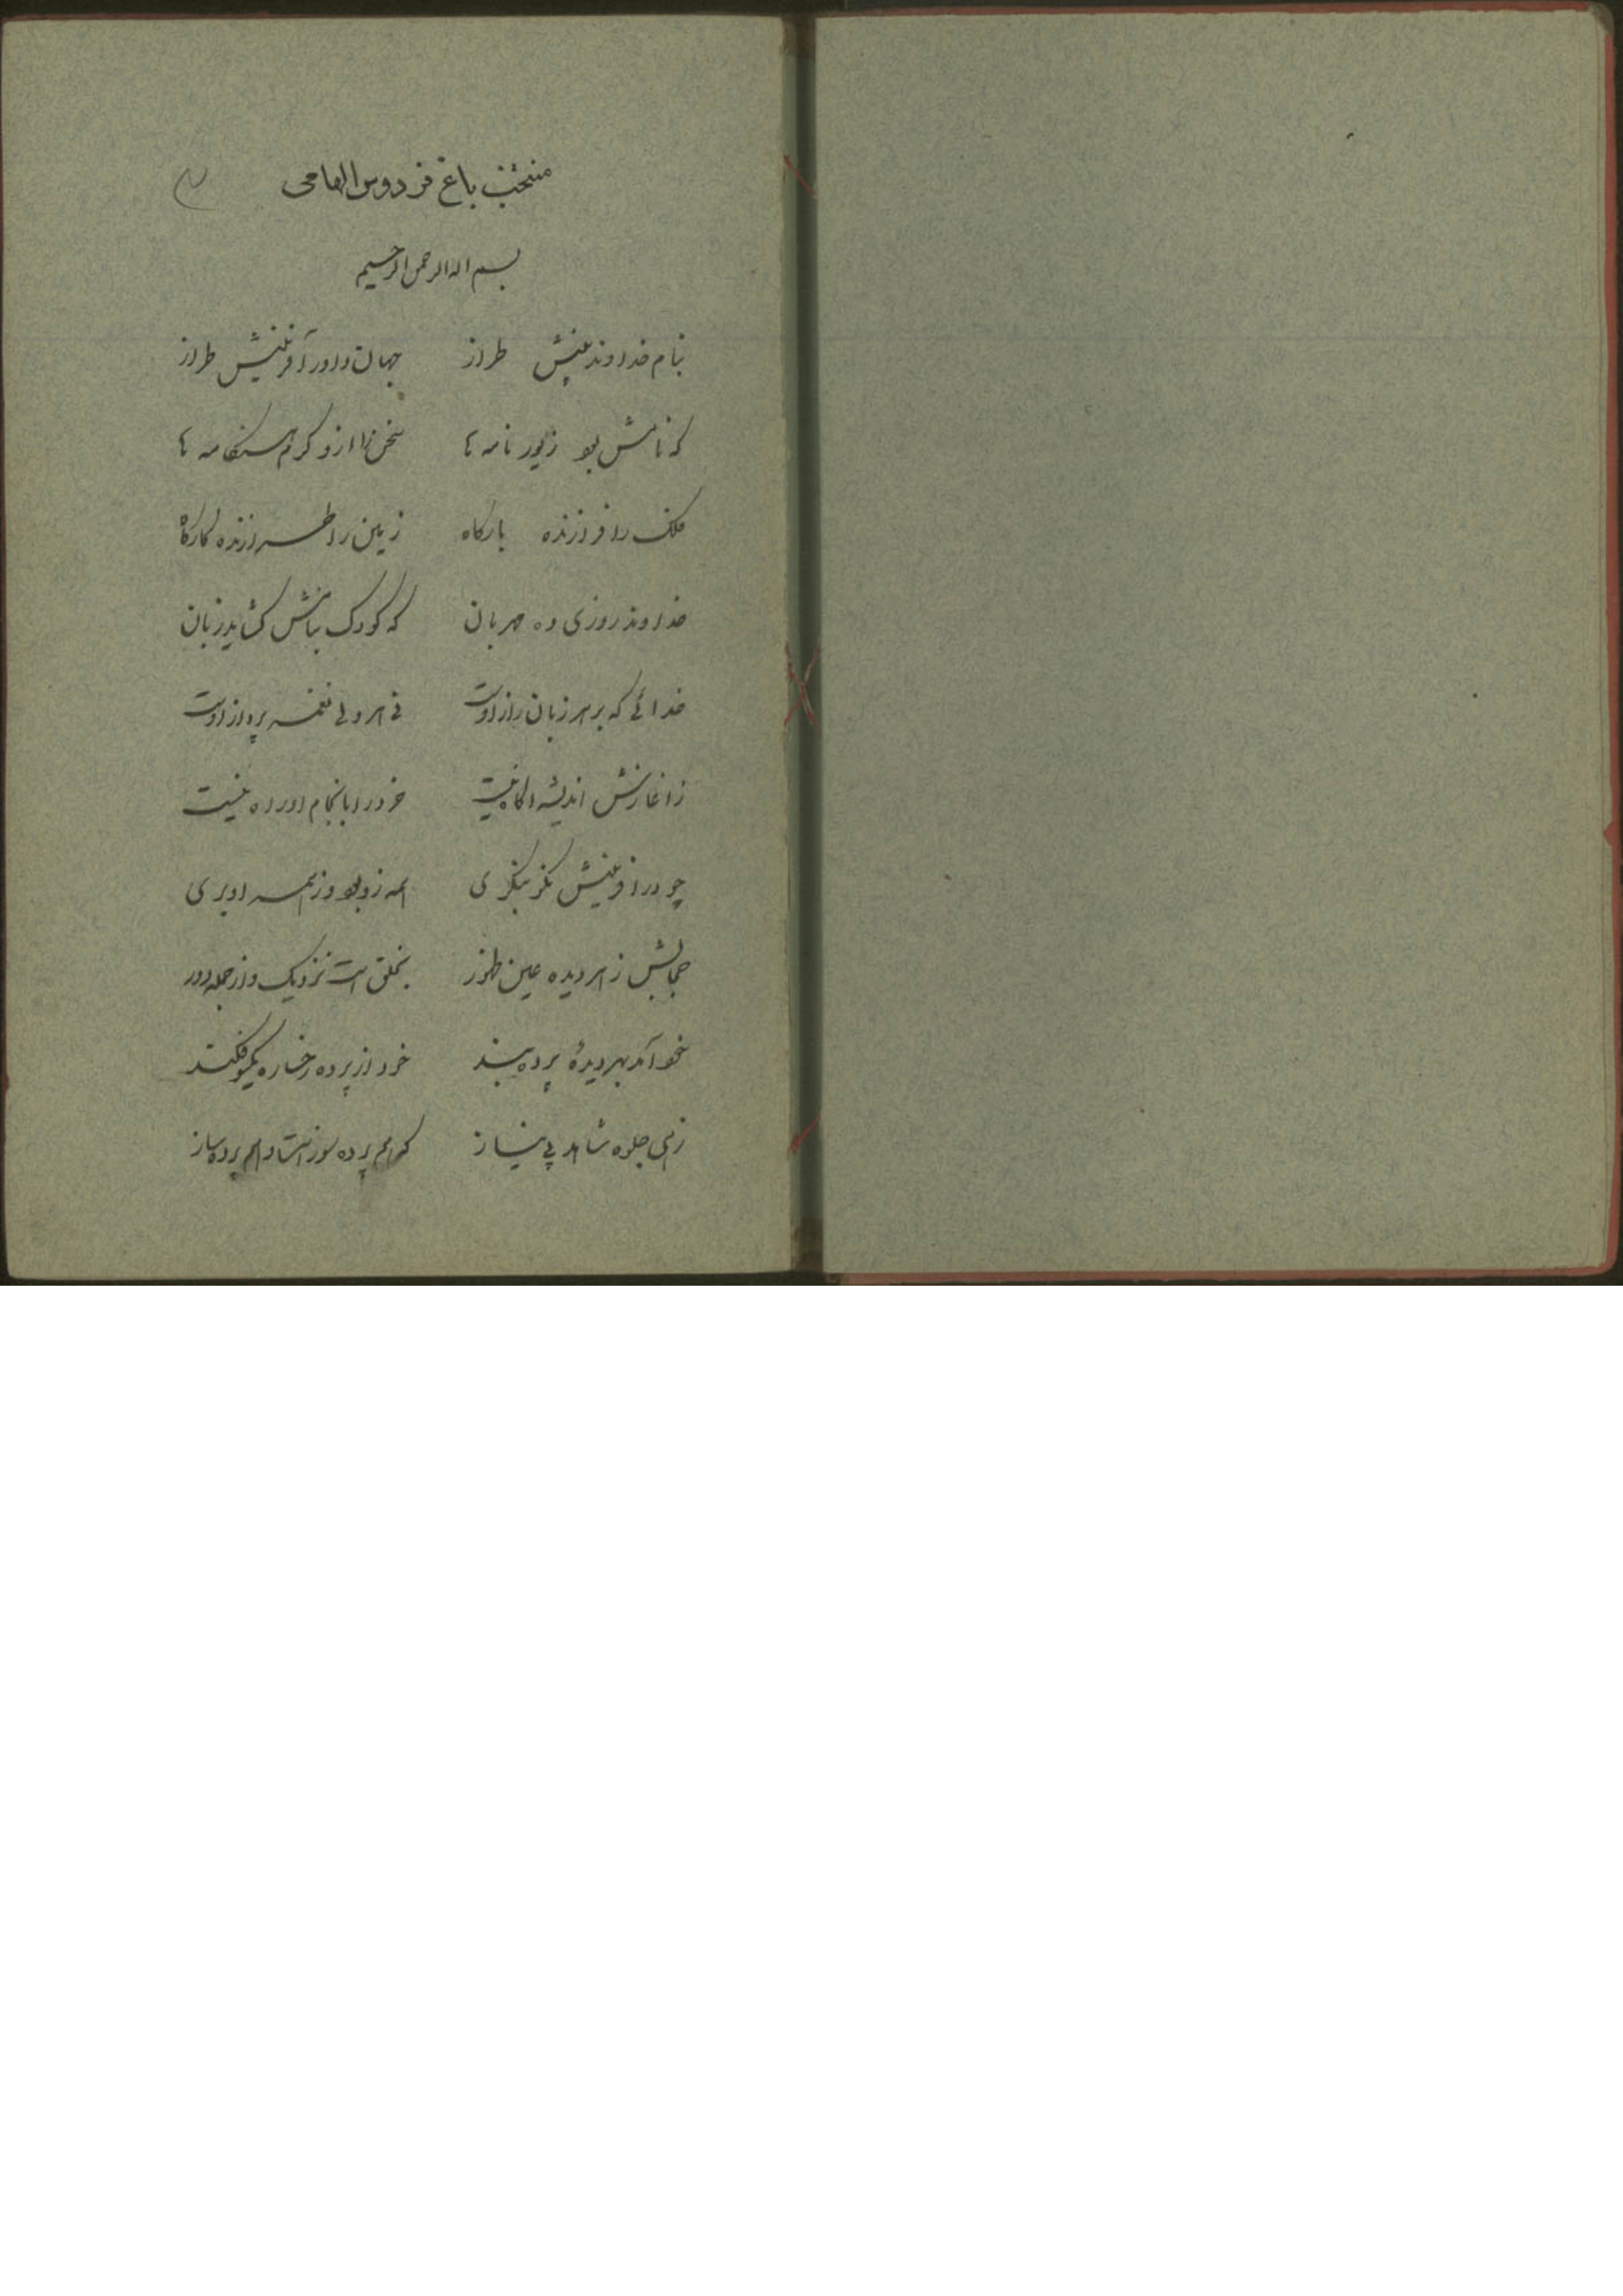 منتخب باغ فردوس الهامی
بسم اله الرحمن الرحیم
بنام خداوند بینش طراز جهان داور آفرینش طراز
که نامش بود زیور نامه ها سخن را ازو گرم هنگامه ها
فلک را فرازنده بارگاه زمین را طرازنده کارگاه
خداوند روزی ده مهربان که کودک بنامش گشاید زبان
خدائی که بر هر زبان راز اوست نی هر دلی نغمه پرداز اوست
ز اغازش اندیشه اگاه نیست خرد را بانجام او راه نیست
چو در افرینش نگو بنگری همه زو بود وز همه او بری
جمالش ز هر دیده عین ظهور بخلق است نزدیک و از جمله دور
نخواند بهر دیدهٔ پرده بند خرد از پرده رخساره یکسو فکند
زهی جلوه شاهد بی نیاز که هم پرده سوز است و هم پرده ساز